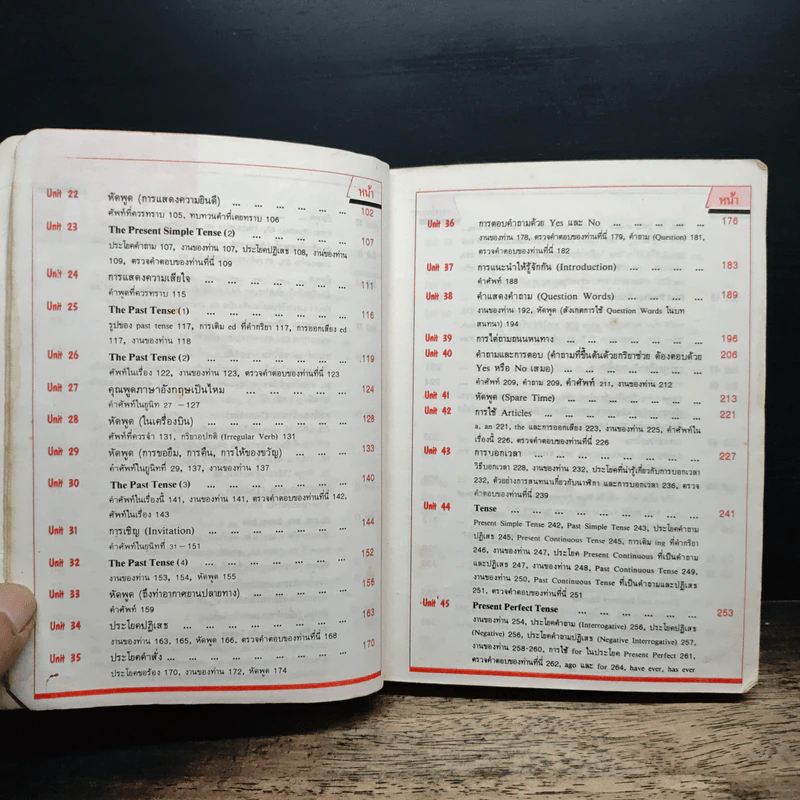 หน้า
Unit 22 หัดพูด (การแสดงความยินดี) ... ... ... ... ... ... 102
ศัพท์ที่ควรทราบ 105, ทบทวนคำที่เคยทราบ 106
Unit 23 The Present Simple Tense (2) ... ... ... ... ... 107
ประโยคคำถาม 107, งานของท่าน 107, ประโยคปฏิเสธ 108, งานของท่าน
109, ตรวจคำตอบของท่านที่นี่ 109
Unit 24 การแสดงความเสียใจ ... ... ... ... ... ... 111
คำพูดที่ควรทราบ 115
Unit 25 The Past Tense (1) ... ... ... ... ... ... 116
รูปของ past tense 117, การเติม ed ที่คำกริยา 117, การออกเสียง ed
117, งานของท่าน 118
Unit 26 The Past Tense (2) ... ... ... ... ... ... 119
คำศัพท์ในเรื่อง 122, งานของท่าน 123, ตรวจคำตอบของท่านที่นี่ 123
Unit 27 คุณพูดภาษาอังกฤษเป็นไหม ... ... ... ... ... 124
คำศัพท์ในยูนิท 27 – 127
Unit 28 หัดพูด (ในเครื่องบิน) ... ... ... ... ... ... 128
ศัพท์ที่ควรจำ 131, กริยาอปกติ (Irregular Verb) 131
Unit 29 หัดพูด (การขอยืม, การคืน, การให้ของขวัญ) ... ... ... 133
คำศัพท์ในยูนิทที่ 29, 137, งานของท่าน 137
Unit 30 The Past Tense (3) ... ... ... ... ... ... 140
คำศัพท์ในเรื่องนี้ 141, งานของท่าน 141, ตรวจคำตอบของท่านที่นี่ 142,
คำศัพท์ในเรื่อง 143
Unit 31 การเชิญ (Invitation) ... ... ... ... ... ... 144
คำศัพท์ในยูนิทที่ 31 – 151
Unit 32 The Past Tense (4) ... ... ... ... ... ... 152
งานของท่าน 153, 154, หัดพูด 155
Unit 33 หัดพูด (ถึงท่าอากาศยานปลายทาง) ... ... ... ... 156
คำศัพท์ 159
Unit 34 ประโยคปฏิเสธ ... ... ... ... ... ... 163
งานของท่าน 163, 165, หัดพูด 166, ตรวจคำตอบของท่านที่นี่ 168
Unit 35 ประโยคคำสั่ง ... ... ... ... ... ... ... 170
ประโยคขอร้อง 170, งานของท่าน 172, หัดพูด 174
หน้า
Unit 36 การตอบคำถามด้วย Yes และ No ... ... ... ... 176
งานของท่าน 178, ตรวจคำตอบของท่านที่นี่ 179, คำถาม (Question) 181,
ตรวจคำตอบของท่านที่นี่ 182
Unit 37 การแนะนำให้รู้จักกัน (Introduction) ... ... ... ... 183
คำศัพท์ 188
Unit 38 คำแสดงคำถาม (Question Words) ... ... ... ... 189
งานของท่าน 192, หัดพูด (สังเกตการใช้ Question Words ในบท
สนทนา) 194
Unit 39 การไต่ถามถนนหนทาง ... ... ... ... ... 196
Unit 40 คำถามและการตอบ (คำถามที่ขึ้นต้นด้วยกริยาช่วย ต้องตอบด้วย 206
Yes หรือ No เสมอ) ... ... ... ... ... ...
คำศัพท์ 209, คำถาม 209, คำศัพท์ 211, งานของท่าน 212
Unit 41 หัดพูด (Spare Time) ... ... ... ... ... ... 213
Unit 42 การใช้ Articles ... ... ... ... ... ... 221
a, an 221, the และการออกเสียง 223, งานของท่าน 225, คำศัพท์ใน
เรื่องนี้ 226, ตรวจคำตอบของท่านที่นี่ 226
Unit 43 การบอกเวลา ... ... ... ... ... ... 227
วิธีบอกเวลา 228, งานของท่าน 232, ประโยคที่น่ารู้เกี่ยวกับการบอกเวลา
232, ตัวอย่างการสนทนาเกี่ยวกับนาฬิกา และการบอกเวลา 236, ตรวจ
คำตอบของท่านที่นี่ 239
Unit 44 Tense ... ... ... ... ... ... ... 241
Present Simple Tense 242, Past Simple Tense 243, ประโยคคำถาม
ปฏิเสธ 245, Present Continuous Tense 245, การเติม ing ที่คำกริยา
246, งานของท่าน 247, ประโยค Present Continuous ที่เป็นคำถาม
และปฏิเสธ 247, งานของท่าน 248, Past Continuous Tense 249,
งานของท่าน 250, Past Continuous Tense ที่เป็นคำถามและปฏิเสธ
251, ตรวจคำตอบของท่านที่นี่ 251
Unit 45 Present Perfect Tense ... ... ... ... ... ... 253
งานของท่าน 254, ประโยคคำถาม (Interrogative) 256, ประโยคปฏิเสธ
(Negative) 256, ประโยคคำถามปฏิเสธ (Negative Interrogative) 257,
งานของท่าน 258-260, การใช้ for ในประโยค Present Perfect 261,
ตรวจคำตอบของท่านที่นี่ 262, ago และ for 264, have ever, has ever